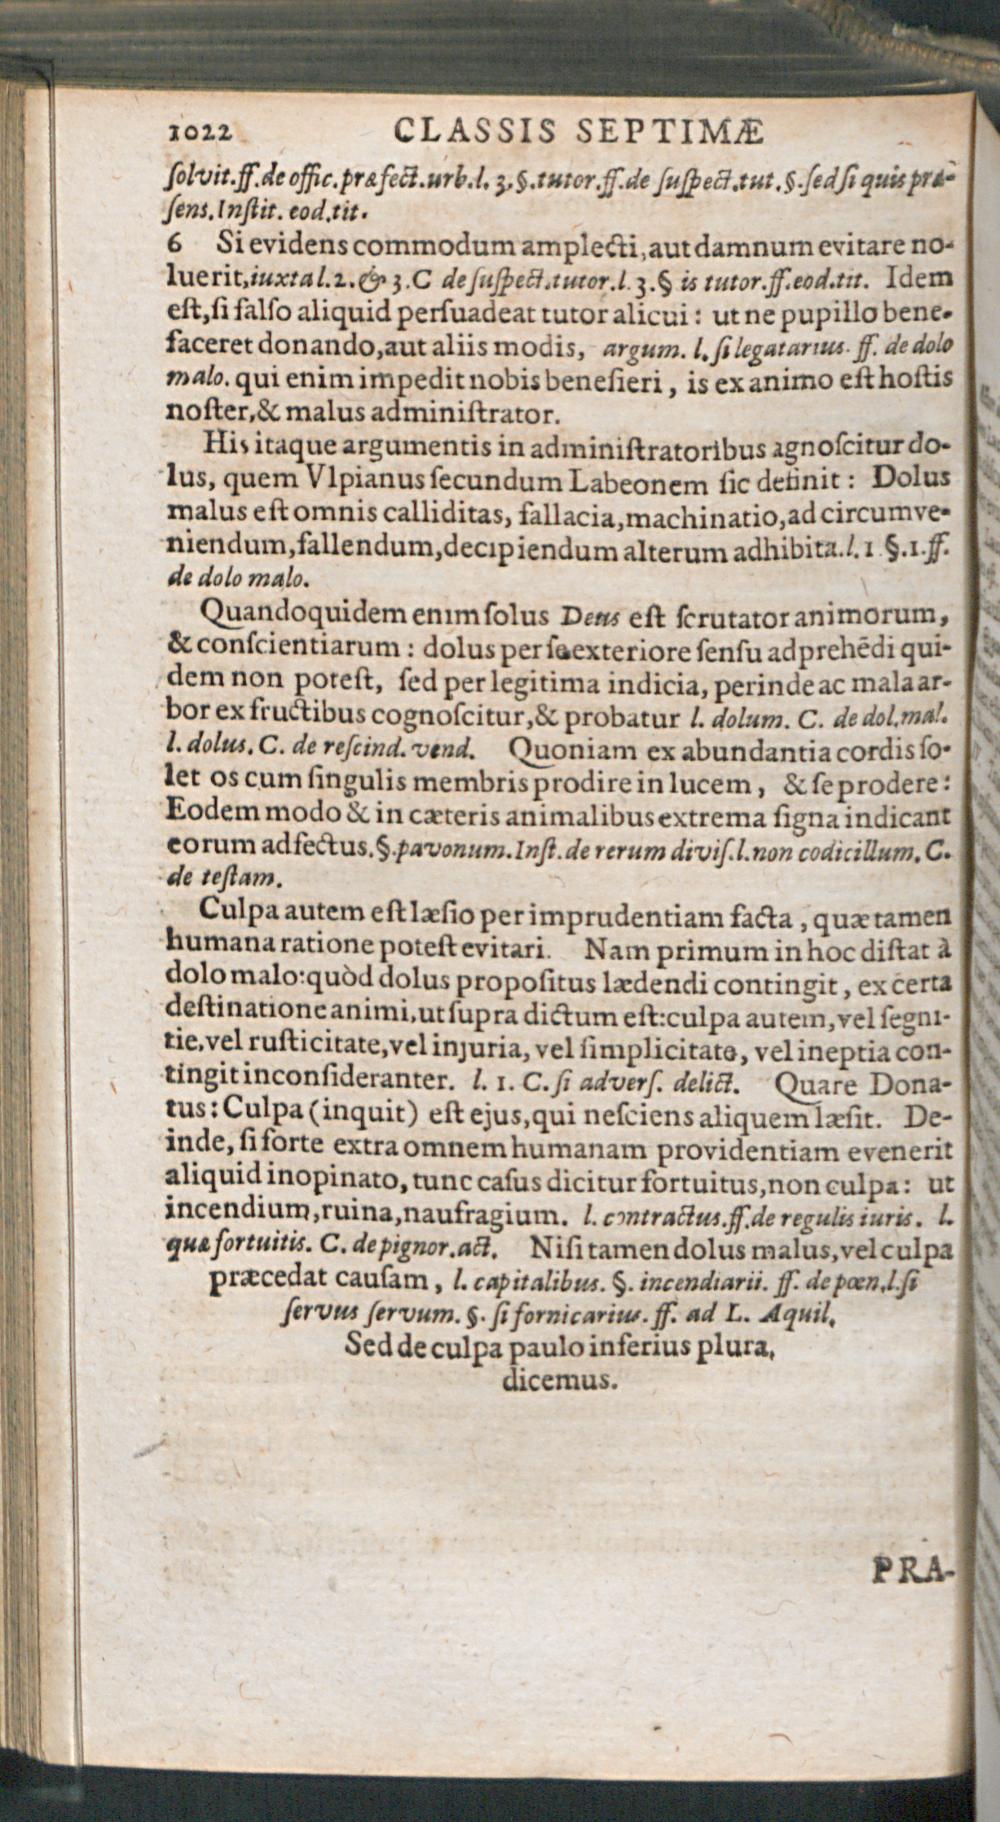 1022 CLASSIS SEPTIMÆ
ſolvit.ff.de offic.præfect.urb.l.3.§.tutor.ff.de ſuſpect.tut.§.ſed ſi quis præ-
ſens.Inſtit. eod.tit.
6 Si evidens commodum amplecti, aut damnum evitare no-
luerit, iuxta l.2. & 3.C de ſuſpect.tutor.l.3.§ is tutor.ff.eod.tit. Idem
eſt, ſi falſo aliquid perſuadeat tutor alicui: ut ne pupillo bene-
faceret donando, aut aliis modis, argum. l. ſi legatarius. ff. de dolo
malo. qui enim impedit nobis benefieri, is ex animo eſt hoſtis
noſter, & malus adminiſtrator.
His itaque argumentis in adminiſtratoribus agnoſcitur do-
lus, quem Vlpianus ſecundum Labeonem ſic definit: Dolus
malus eſt omnis calliditas, fallacia, machinatio, ad circumve-
niendum, fallendum, decipiendum alterum adhibita. l. 1 §.1.ff.
de dolo malo.
Quandoquidem enim ſolus Deus eſt ſcrutator animorum,
& conſcientiarum: dolus per ſe exteriore ſenſu adprehēdi qui-
dem non poteſt, ſed per legitima indicia, perinde ac mala ar-
bor ex fructibus cognoſcitur, & probatur l. dolum. C. de dol.mal.
l. dolus. C. de reſcind. vend. Quoniam ex abundantia cordis ſo-
let os cum ſingulis membris prodire in lucem, & ſe prodere:
Eodem modo & in cæteris animalibus extrema ſigna indicant
eorum adfectus. §. pavonum. Inſt. de rerum diviſ. l. non codicillum. C.
de teſtam.
Culpa autem eſt læſio per imprudentiam facta, quæ tamen
humana ratione poteſt evitari. Nam primum in hoc diſtat à
dolo malo: quòd dolus propoſitus lædendi contingit, ex certa
deſtinatione animi, ut ſupra dictum eſt: culpa autem, vel ſegni-
tie, vel ruſticitate, vel injuria, vel ſimplicitate, vel ineptia con-
tingit inconſideranter. l. 1. C. ſi adverſ. delict. Quare Dona-
tus: Culpa (inquit) eſt ejus, qui neſciens aliquem læſit. De-
inde, ſi forte extra omnem humanam providentiam evenerit
aliquid inopinato, tunc caſus dicitur fortuitus, non culpa: ut
incendium, ruina, naufragium. l. contractus. ff. de regulis iuris. l.
quæ fortuitis. C. de pignor. act. Niſi tamen dolus malus, vel culpa
præcedat cauſam, l. capitalibus. §. incendiarii. ff. de pœn. l. ſi
ſervus ſervum. §. ſi fornicarius. ff. ad L. Aquil.
Sed de culpa paulo inferius plura,
dicemus.
PRA-